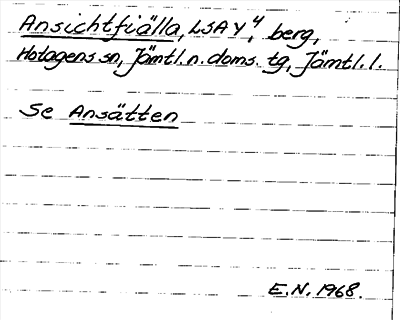 Ansichtfiälla, LSA Y⁴, berg,
Hotagens sn, Jämtl. n. doms. tg, Jämtl. l.
Se Ansätten
E.N. 1968.